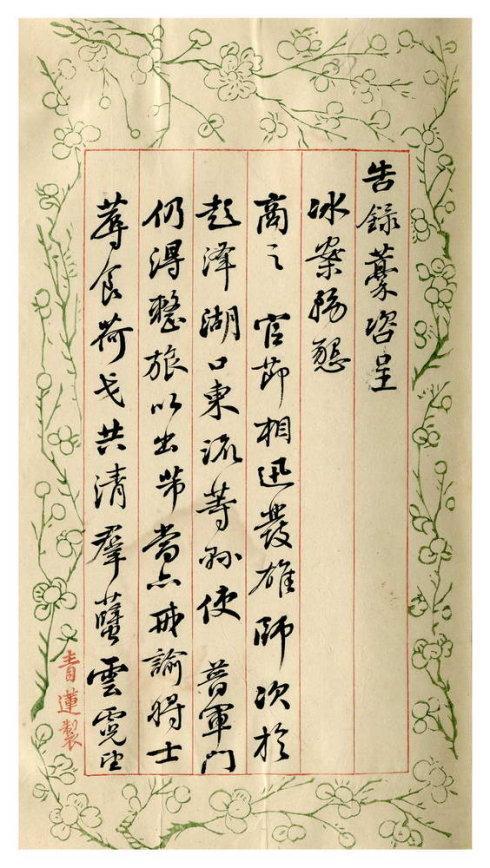 告錄藁咨呈
冰案務懇
商之 官節相迅發雄師次於
彭澤湖口東流等縣使 普軍門
仍得整旅以出弟當亦諭將士
蓐食荷戈共清羣孽雲霓望
青蓮製